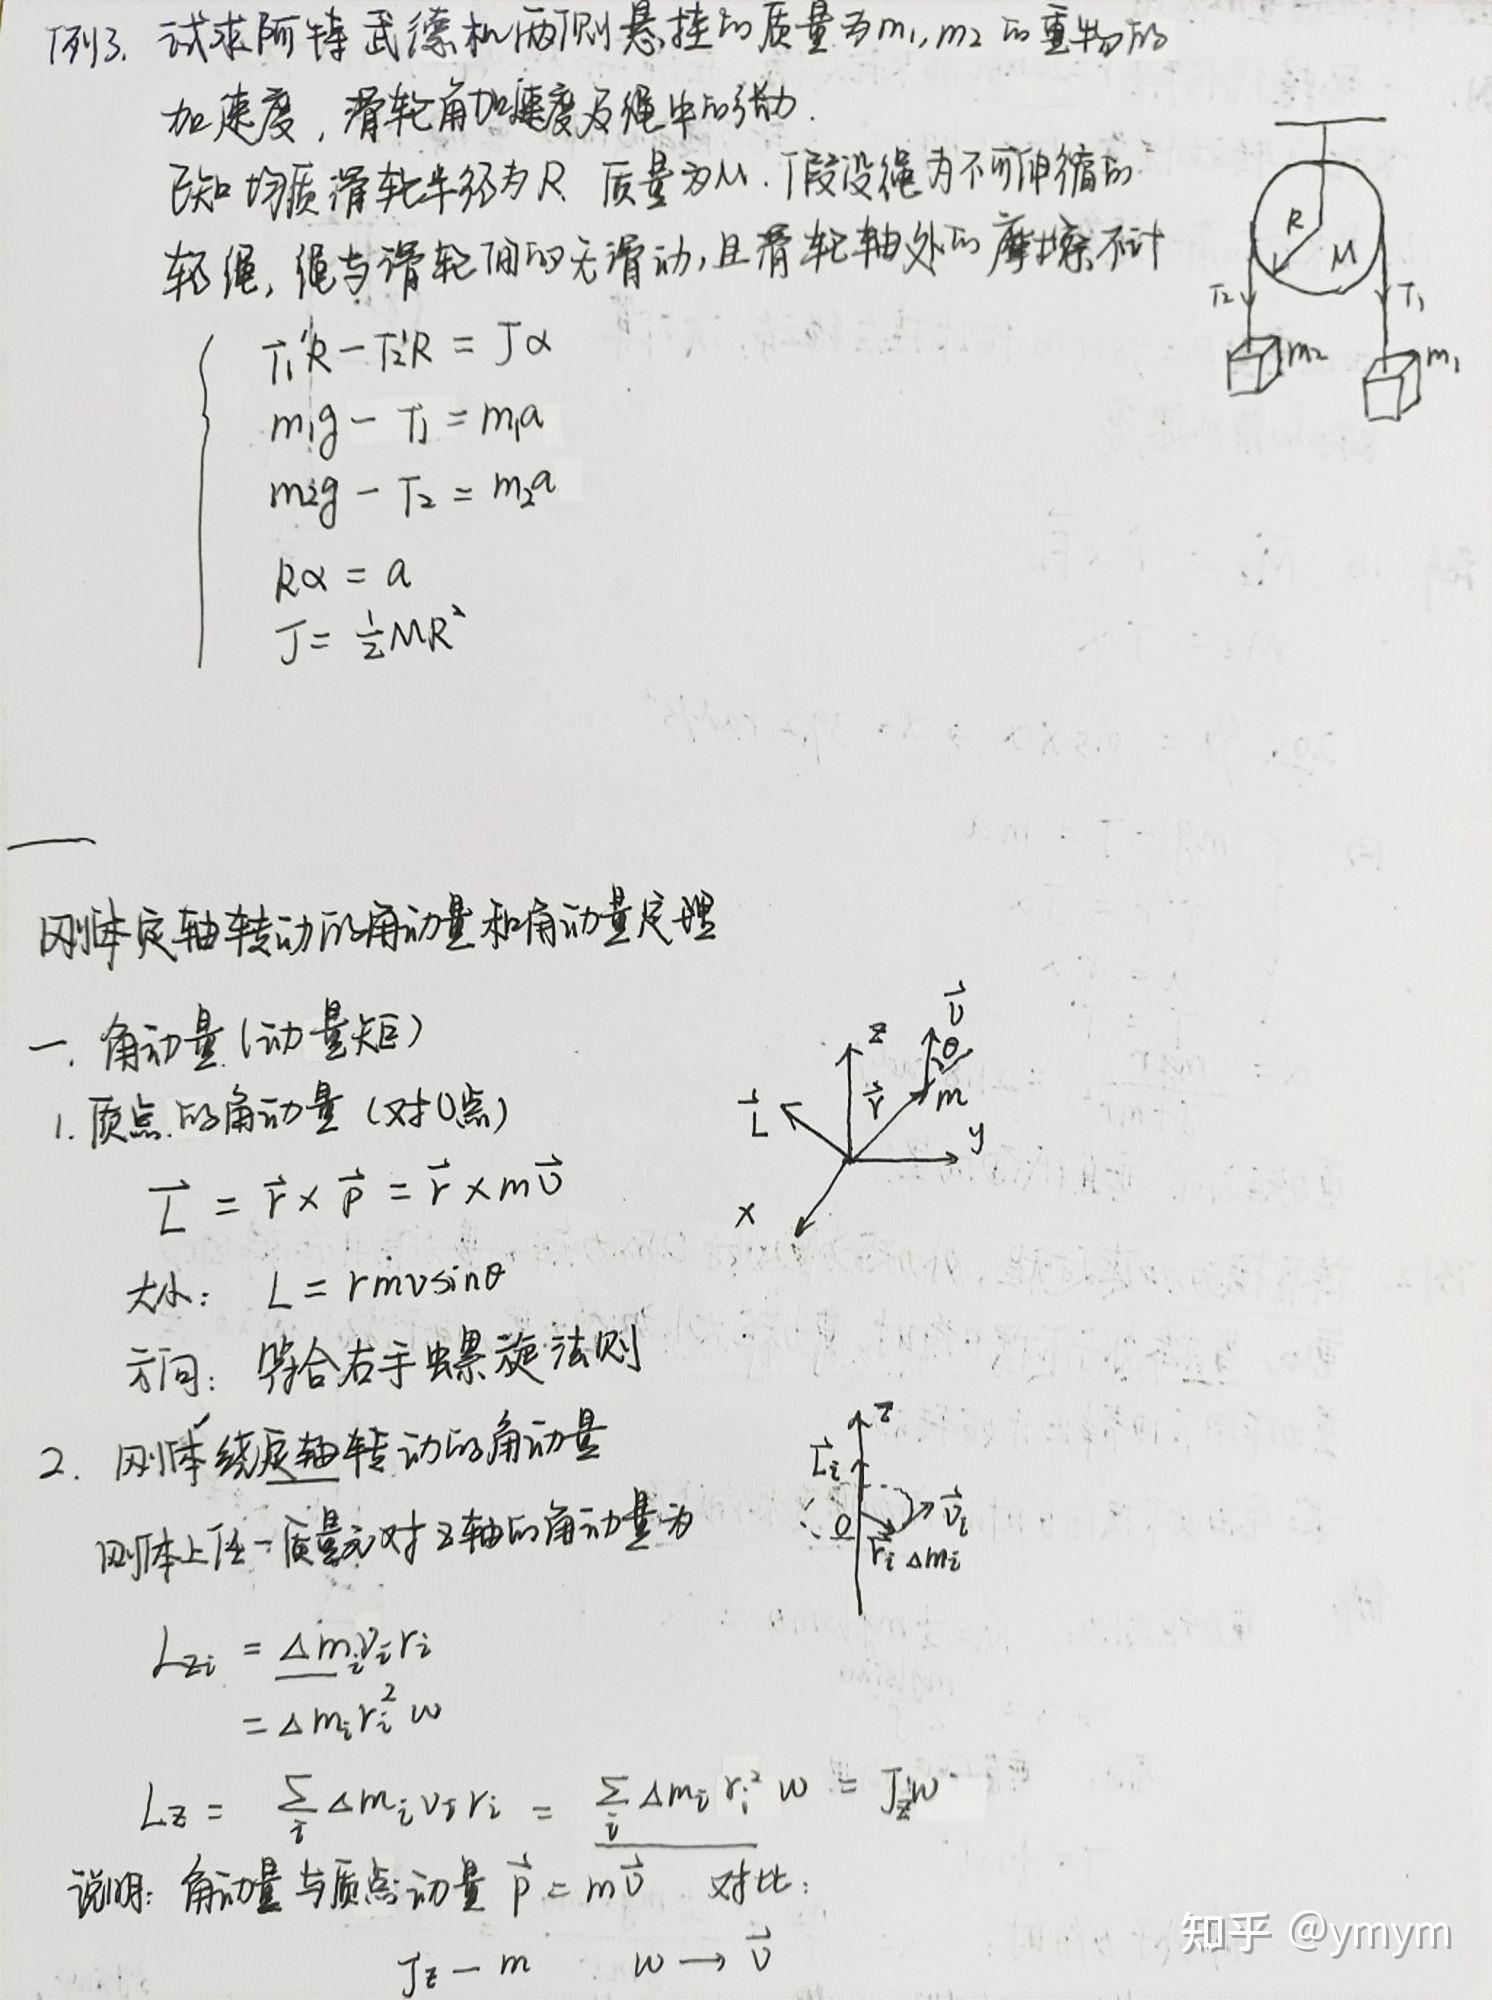 例3. 试求阿特武德机两则悬挂的质量为m₁,m₂的重物的
加速度,滑轮角加速度及绳中的张力.
已知均质滑轮半径为R 质量为M.假设绳为不可伸缩的
轻绳,绳与滑轮间的无滑动,且滑轮轴处的摩擦不计
R
M
T₂
T₁
m₂
m₁
T₁'R - T₂'R = Jα
m₁g - T₁ = m₁a
m₂g - T₂ = m₂a
Rα = a
J = ½MR²
刚体定轴转动的角动量和角动量定理
一. 角动量(动量矩)
1. 质点的角动量(对O点)
L⃗ = r⃗ × p⃗ = r⃗ × mv⃗
大小: L = rmvsinθ
方向: 符合右手螺旋法则
z
v⃗
θ
L⃗
r⃗
m
y
x
2. 刚体绕定轴转动的角动量
刚体上任一质量元对z轴的角动量为
z
L⃗i
v⃗i
O
r⃗i Δmi
Lzi = Δmiviri
= Δmiri²ω
Lz = ∑i Δmiviri = ∑i Δmiri²ω = Jzω
说明: 角动量与质点动量 p⃗ = mv⃗ 对比:
Jz — m ω → v⃗
知乎 @ymym